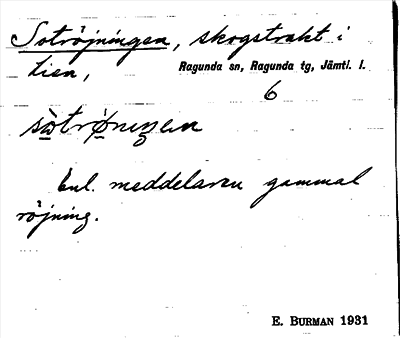 Sotröjningen, skogstrakt i
Lien,
Ragunda sn, Ragunda tg, Jämtl. l.
6
Enl. meddelaren gammal
röjning.
E. BURMAN 1931